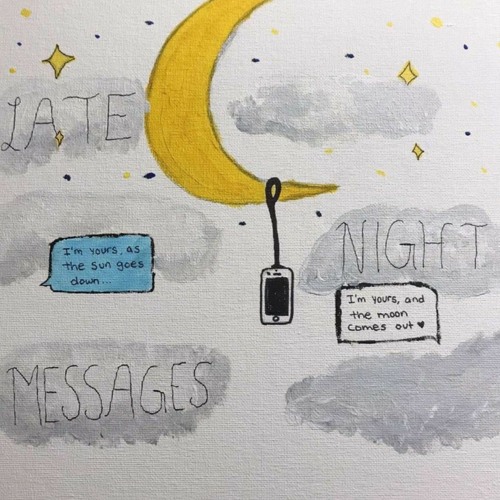 LATE
NIGHT
I'm yours, as
the sun goes
down...
I'm yours, and
the moon
comes out ♥
MESSAGES